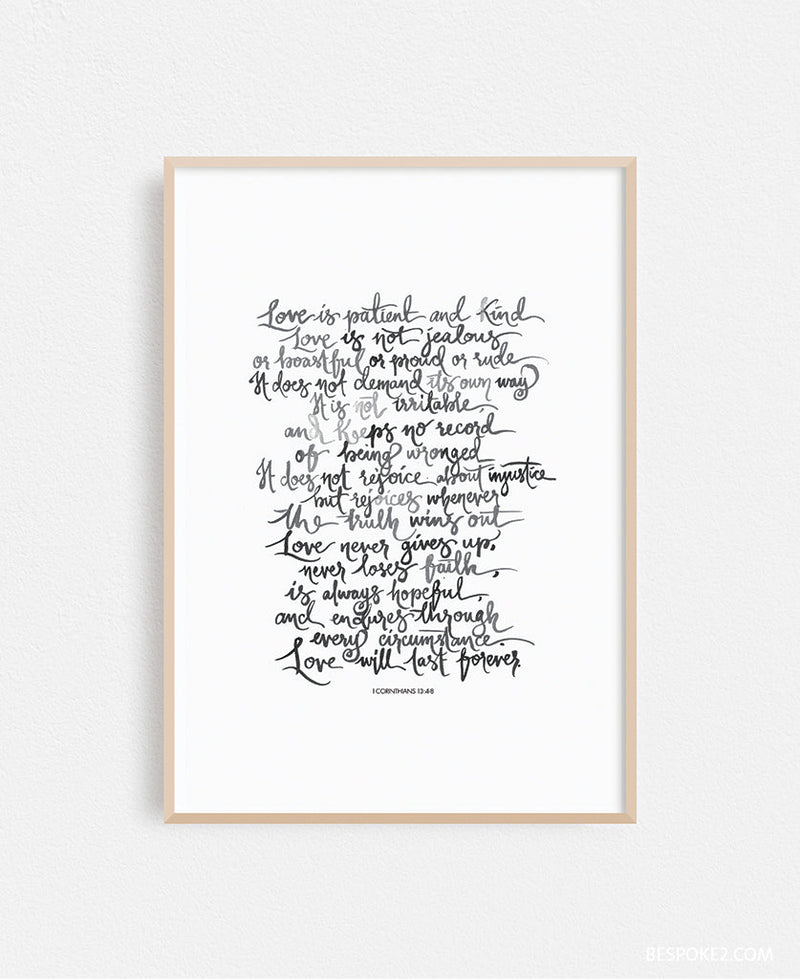 Love is patient and kind
Love is not jealous
or boastful or proud or rude
It does not demand its own way
It is not irritable,
and keeps no record
of being wronged
It does not rejoice about injustice
but rejoices whenever
the truth wins out
Love never gives up,
never loses faith,
is always hopeful,
and endures through
every circumstance.
Love will last forever.
1 CORINTHIANS 13:4-8
BESPOKE2.COM